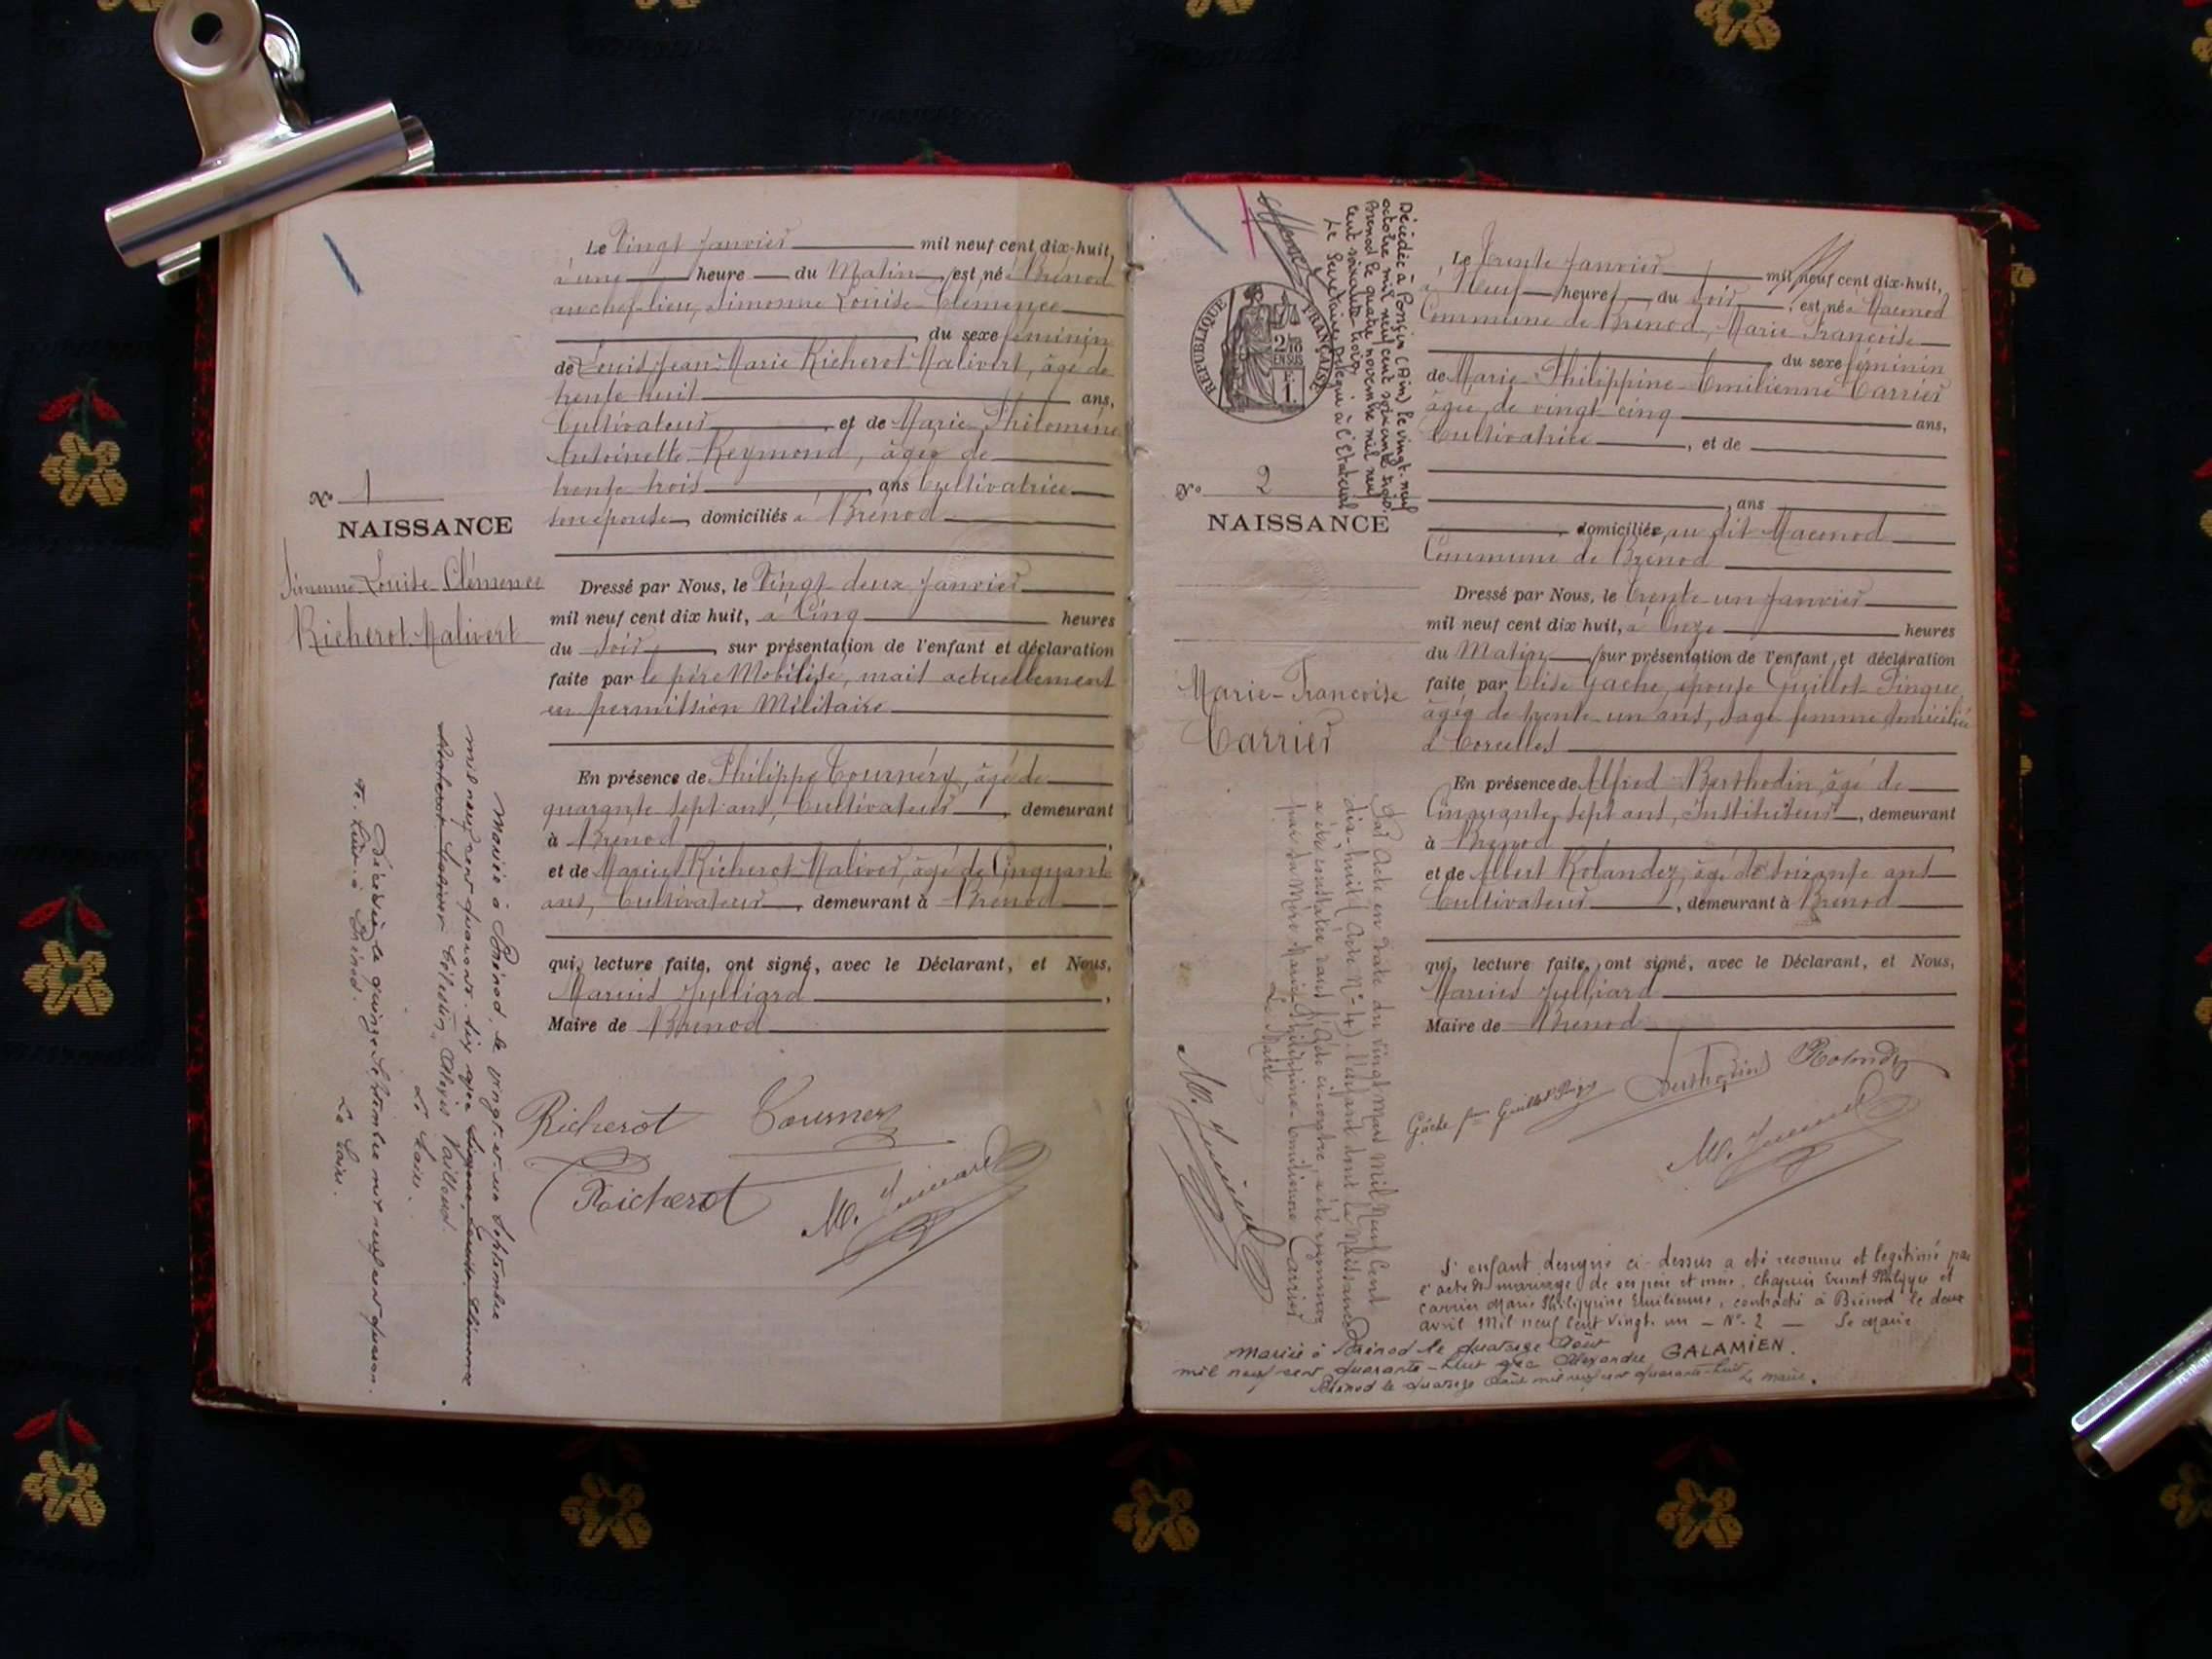 Le Vingt Janvier mil neuf cent dix-huit,
à une heure du Matin, est né à Brenod
au chef-lieu, Simonne Louise Clémence
du sexe féminin
de Louis Jean-Marie Richerot-Malivert, âgé de
trente huit ans,
Cultivateur, et de Marie Philomène
Antoinette Reymond, âgée de
trente trois ans Cultivatrice
son épouse, domiciliés à Brenod
No 1
NAISSANCE
Simonne Louise Clémence
Richerot-Malivert
Dressé par Nous, le Vingt deux Janvier
mil neuf cent dix huit, à Cinq heures
du Soir, sur présentation de l'enfant et déclaration
faite par le père Mobilisé, mais actuellement
en permission Militaire
En présence de Philippe Tournery, âgé de
quarante sept ans, Cultivateur, demeurant
à Brenod,
et de Marius Richerot-Malivert, âgé de Cinquante
ans, Cultivateur, demeurant à Brenod
qui, lecture faite, ont signé, avec le Déclarant, et Nous,
Marius Julliard,
Maire de Brenod
Richerot Tournery
Richerot M. Julliard
Mariée à Brénod, le vingt-et-un Septembre
mil neuf cent quarante-six avec Simonne, Louise, Clémence
Richerot-Malivert Célestin, Alexis Vailloud.
Le Maire.
Décédée le quinze Septembre mil neuf cent
à Brénod.
Le Maire.
Décédée à Poncin (Ain) le vingt-neuf
octobre mil neuf cent soixante trois.
Brenod le quatre novembre mil neuf
cent soixante-trois
Le Secrétaire Délégué à l'Etat civil
REPUBLIQUE FRANÇAISE
2/10
EN SUS
Le Trente Janvier mil neuf cent dix-huit,
à Neuf heures du Soir, est né à Macconod
Commune de Brenod, Marie Françoise
du sexe féminin
de Marie-Philippine-Emilienne Carrier
âgée de vingt cinq ans,
Cultivatrice, et de
, ans
domiciliée au dit Macconod
Commune de Brenod
No 2
NAISSANCE
Marie-Françoise
Carrier
Dressé par Nous, le trente-un Janvier
mil neuf cent dix huit, à Onze heures
du Matin, sur présentation de l'enfant et déclaration
faite par Elise Gache, épouse Guillot-Pingue,
âgée de trente-un ans, Sage femme domiciliée
à Corcelles
En présence de Alfred Berthodin, âgé de
Cinquante sept ans, Instituteur, demeurant
à Brenod,
et de Albert Rolandez, âgé de soixante ans
Cultivateur, demeurant à Brenod
qui, lecture faite, ont signé, avec le Déclarant, et Nous,
Marius Julliard
Maire de Brenod
Gâche Guillot Pingue Berthodin Rolandez
M. Julliard
Par Acte en date du vingt Mars Mil Neuf Cent
dix-huit (Acte N° 4), l'enfant dont la Naissance
a été constatée dans l'Acte ci-contre, a été reconnue
par sa Mère Marie-Philippine-Emilienne Carrier
Le Maire
M. Julliard
L'enfant designé ci-dessus a été reconnu et legitimé par
l'acte de mariage de ses père et mère, Chapuis Ernest Philippe et
Carrier Marie Philippine Emilienne, contracté à Brénod le deux
avril Mil neuf cent vingt un — N° 2 — Le Maire
Mariée à Brénod le quatorze Août
mil neuf cent quarante-huit avec Alexandre GALAMIEN.
Brénod le quatorze Août mil neuf cent quarante-huit
Le Maire.